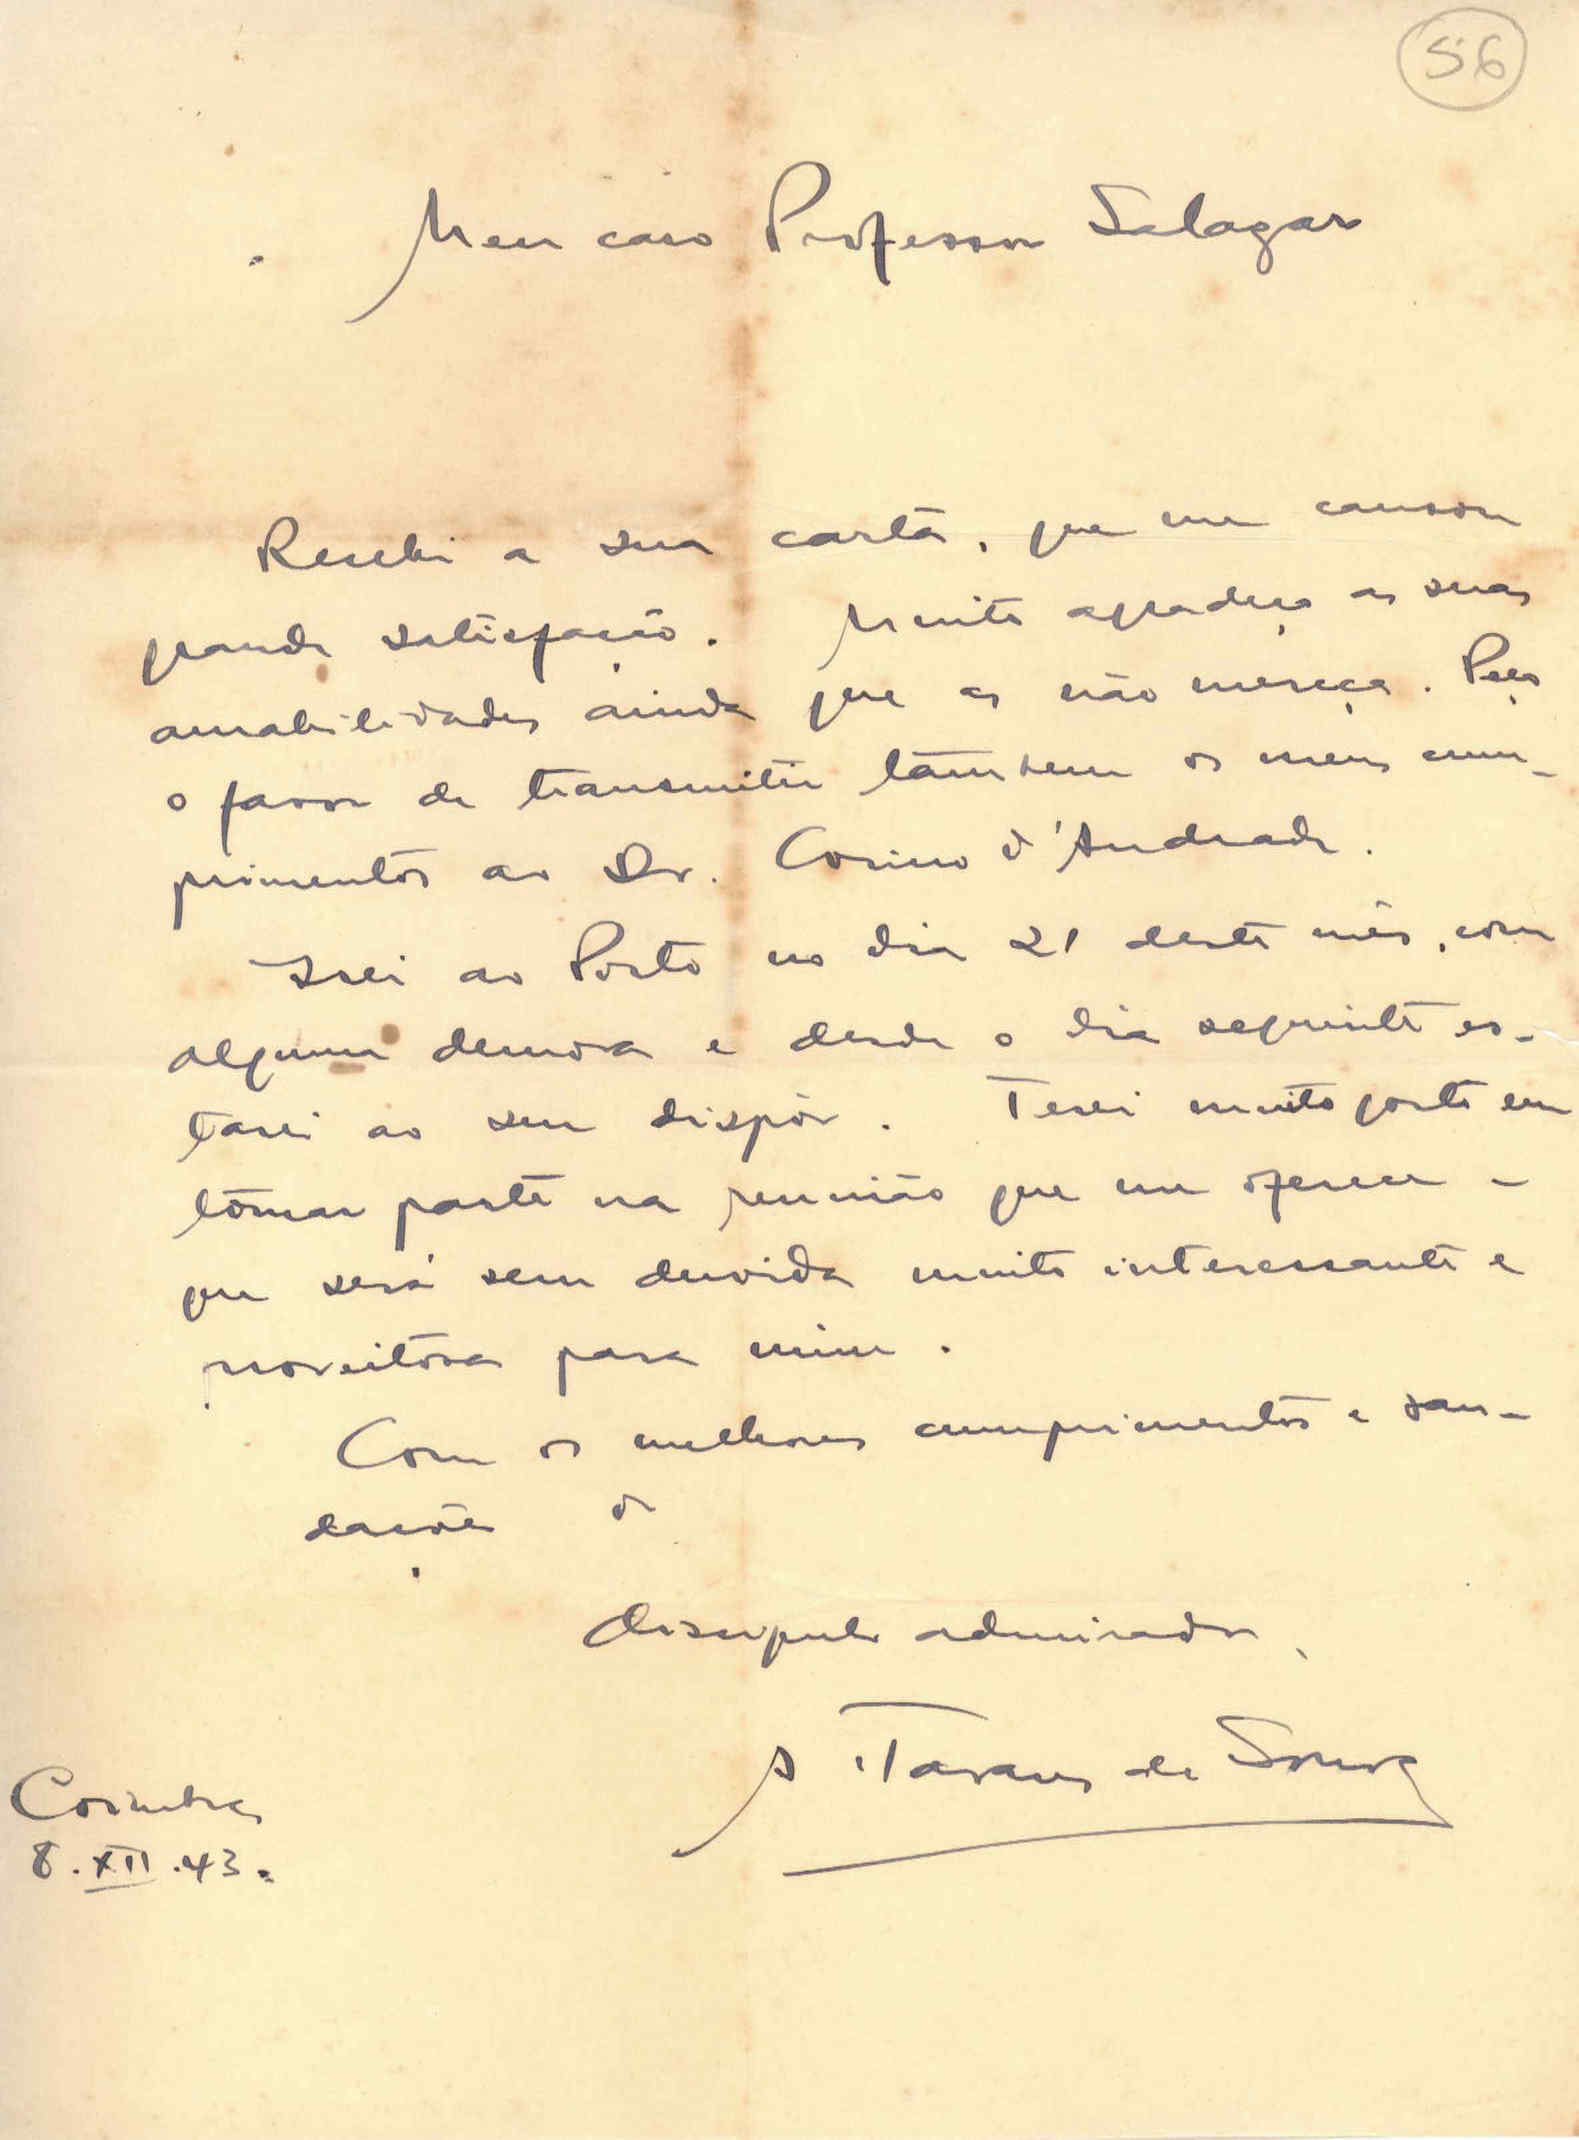 56
Meu caro Professor Salazar
Recebi a sua carta, que me causou
grande satisfação. Muito agradeço as suas
amabilidades ainda que as não mereça. Peço
o favor de transmitir tambem os meus cum-
primentos ao Dr. Corino d'Andrade.
Irei ao Porto no dia 21 deste mês, com
alguma demora e desde o dia seguinte es-
tarei ao seu dispôr. Terei muito gosto em
tomar parte na reunião que me oferece -
que será sem duvida muito interessante e
proveitosa para mim.
Com os melhores cumprimentos e sau-
dações de
discipulo admirador,
A Tavares de Sousa
Coimbra,
8.XII.43.